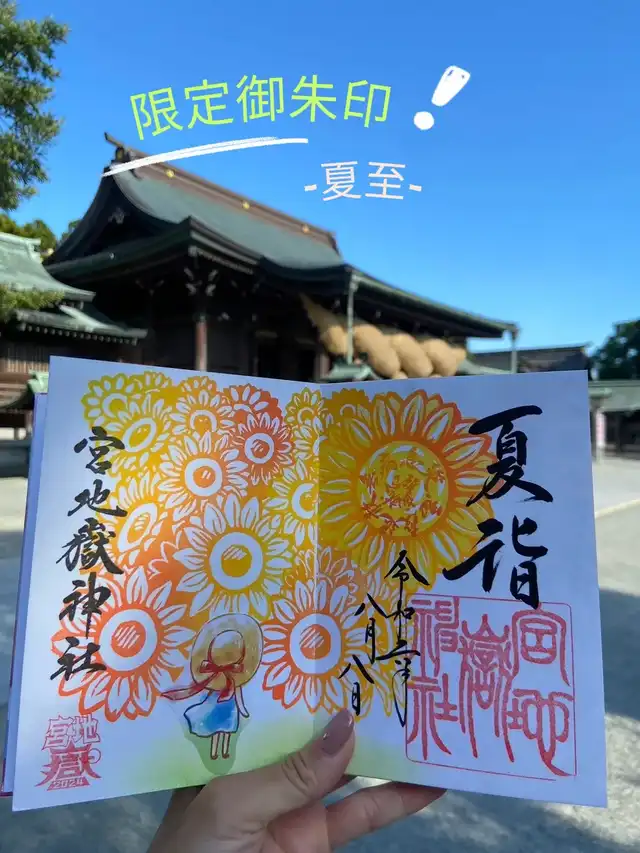 限定御朱印!
-夏至-
夏詣
宮地
嶽
神社
令和六年
八月八日
宮地嶽神社
宮地
嶽
2024